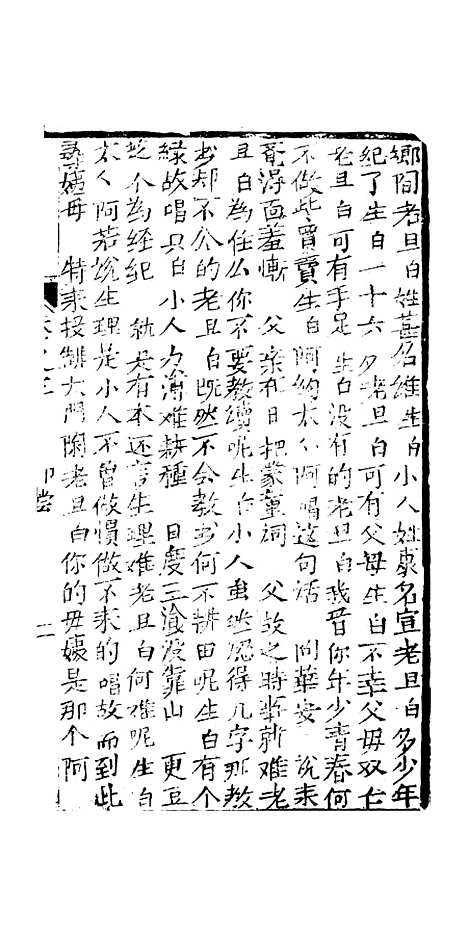 鄉間老旦白姓甚名維生白小人姓康名宣老旦白多少年
紀了生白一十六歲老旦白可有父母生白不幸父母双亡
老旦白可有手足生白没有的老旦白我看你年少青春何
不做些買賣生白阿約太人阿唱這句話 问華安 說来
竟淂面羞慚 父亲在日把蒙童詞 父故之時漸漸难老
旦白為住么你不要教讀呢生白小人虽然认得几字那教
书却不会的老旦白既然不会教书何不耕田呢生白有个
緣故唱只白小人力薄难耕種 日度三湌没靠山 更豆
这个為经纪 就是有本还言生理难老旦白何难呢生白
太人阿若说生理是小人不曾做慣做不来的唱故而到此
尋嬢母 特来投靠大門闌老旦白你的母嬢是那个阿
卷之三 二